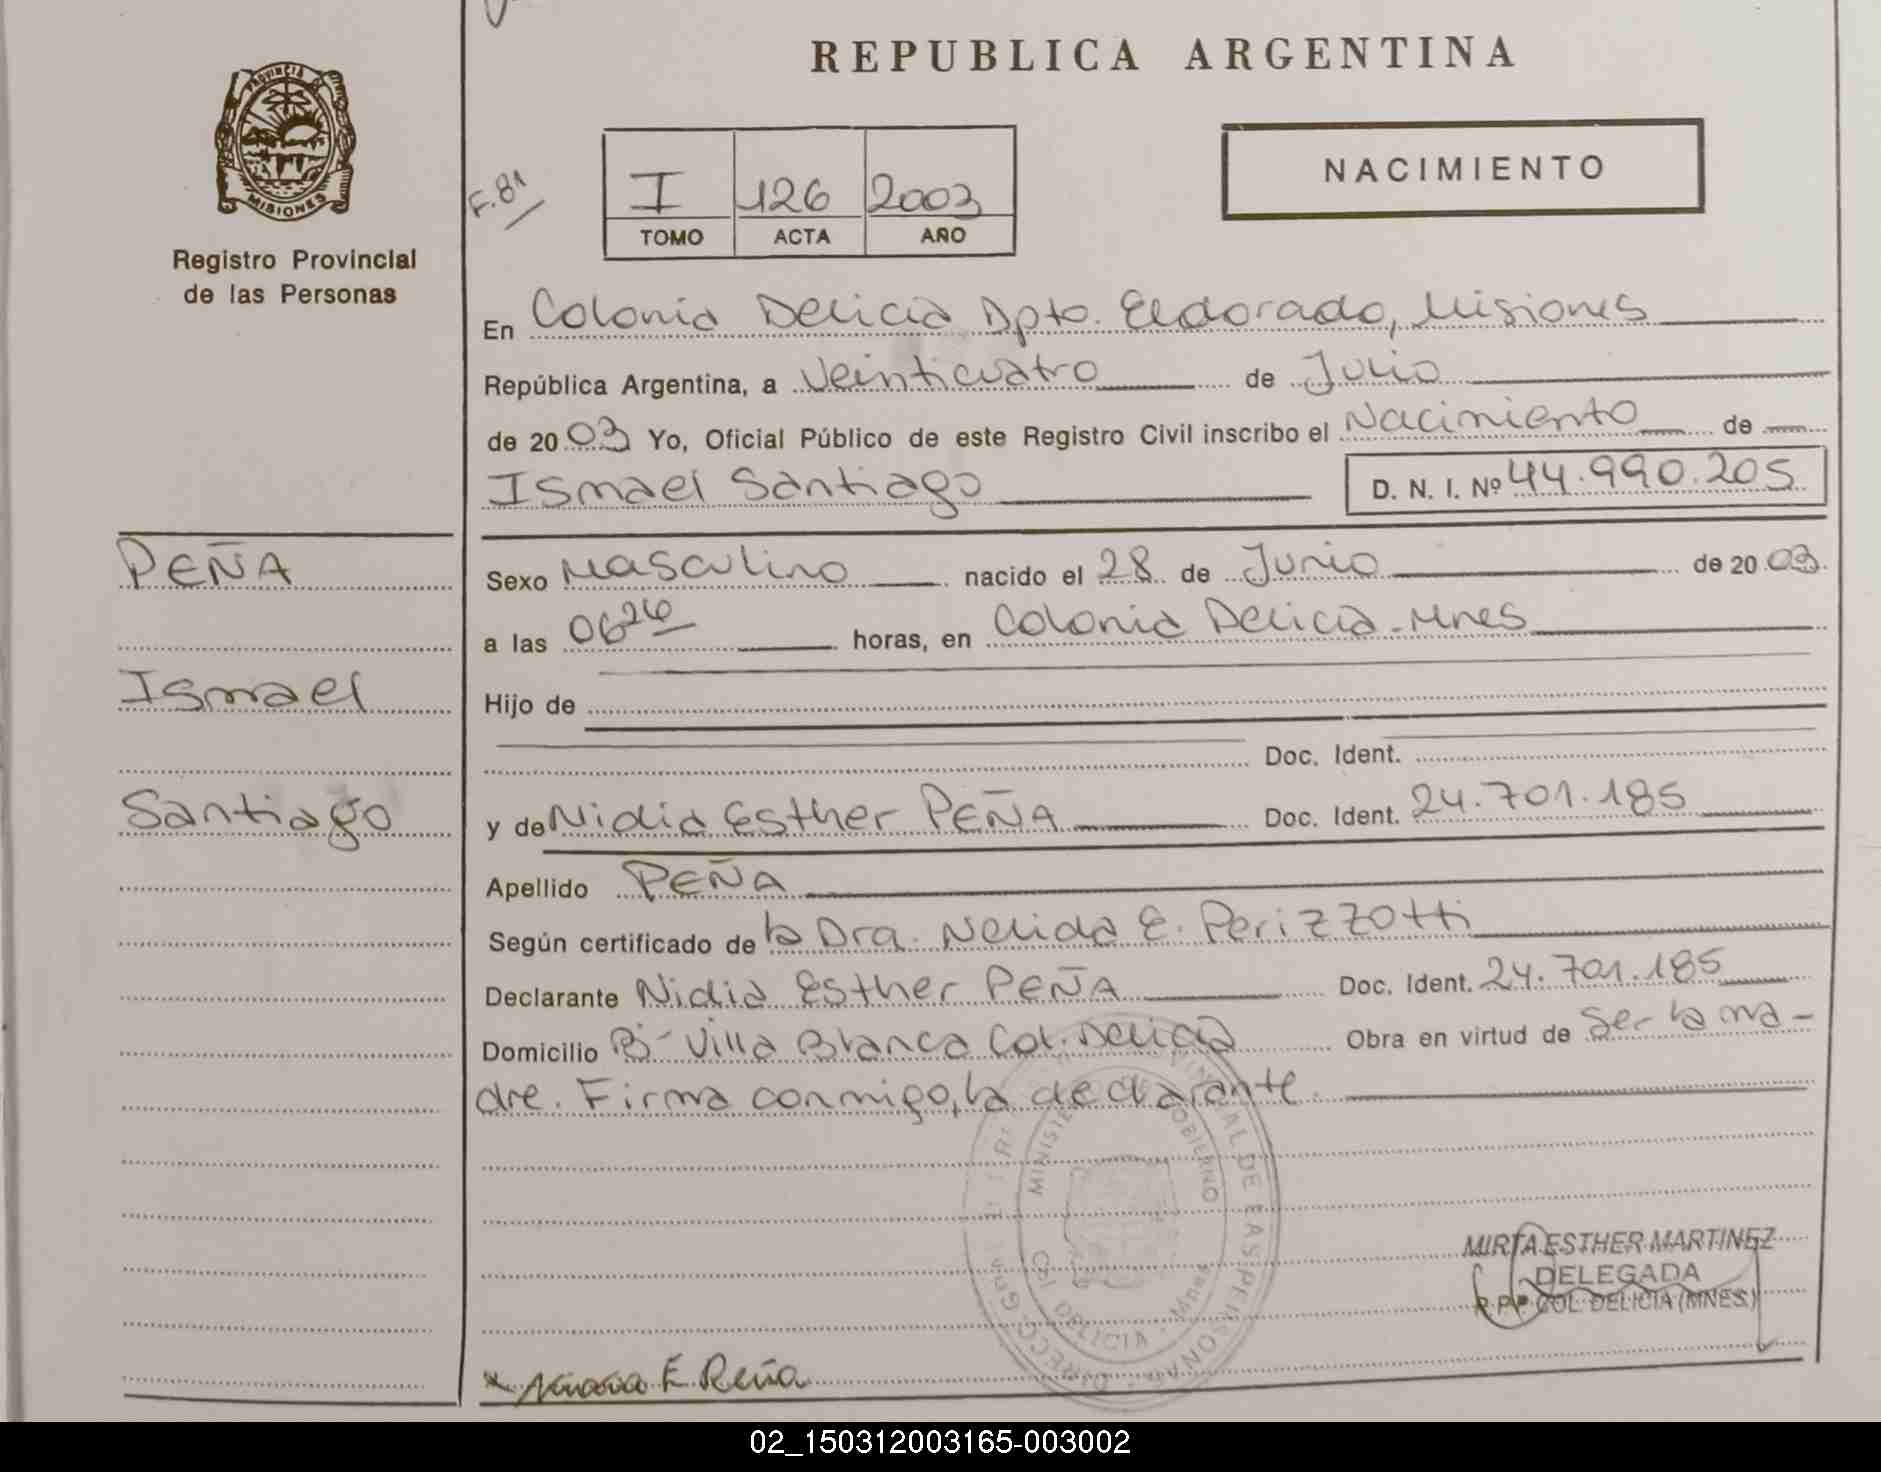 REPUBLICA ARGENTINA
PROVINCIA DE MISIONES
Registro Provincial
de las Personas
F.81
I 126 2003
TOMO ACTA AÑO
NACIMIENTO
En Colonia Delicia Dpto. Eldorado, Misiones
República Argentina, a Veinticuatro de Julio
de 2003 Yo, Oficial Público de este Registro Civil inscribo el Nacimiento de
Ismael Santiago D. N. I. Nº 44.990.205
PEÑA
Ismael
Santiago
Sexo Masculino nacido el 28 de Junio de 2003
a las 06 horas, en Colonia Delicia-Mnes
Hijo de
Doc. Ident.
y de Nidia Esther PEÑA Doc. Ident. 24.701.185
Apellido PEÑA
Según certificado de la Dra. Nelida E. Perizzotti
Declarante Nidia Esther PEÑA Doc. Ident. 24.701.185
Domicilio Bº Villa Blanca Col. Delicia Obra en virtud de Ser la ma-
dre. Firma conmigo, la declarante.
MINISTE GOBIERNO
COL DELICIA - Mnes
MIRTA ESTHER MARTINEZ
DELEGADA
R.P.P. COL. DELICIA (MNES)
E Peña
02_150312003165-003002